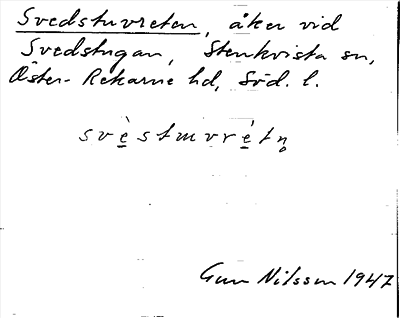 Svedstuvreten, åker vid
Svedstugan, Stenkvista sn,
Öster-Rekarne hd, Söd. l.
svè̱stɯvré̱tn̥
Gun Nilsson 1947